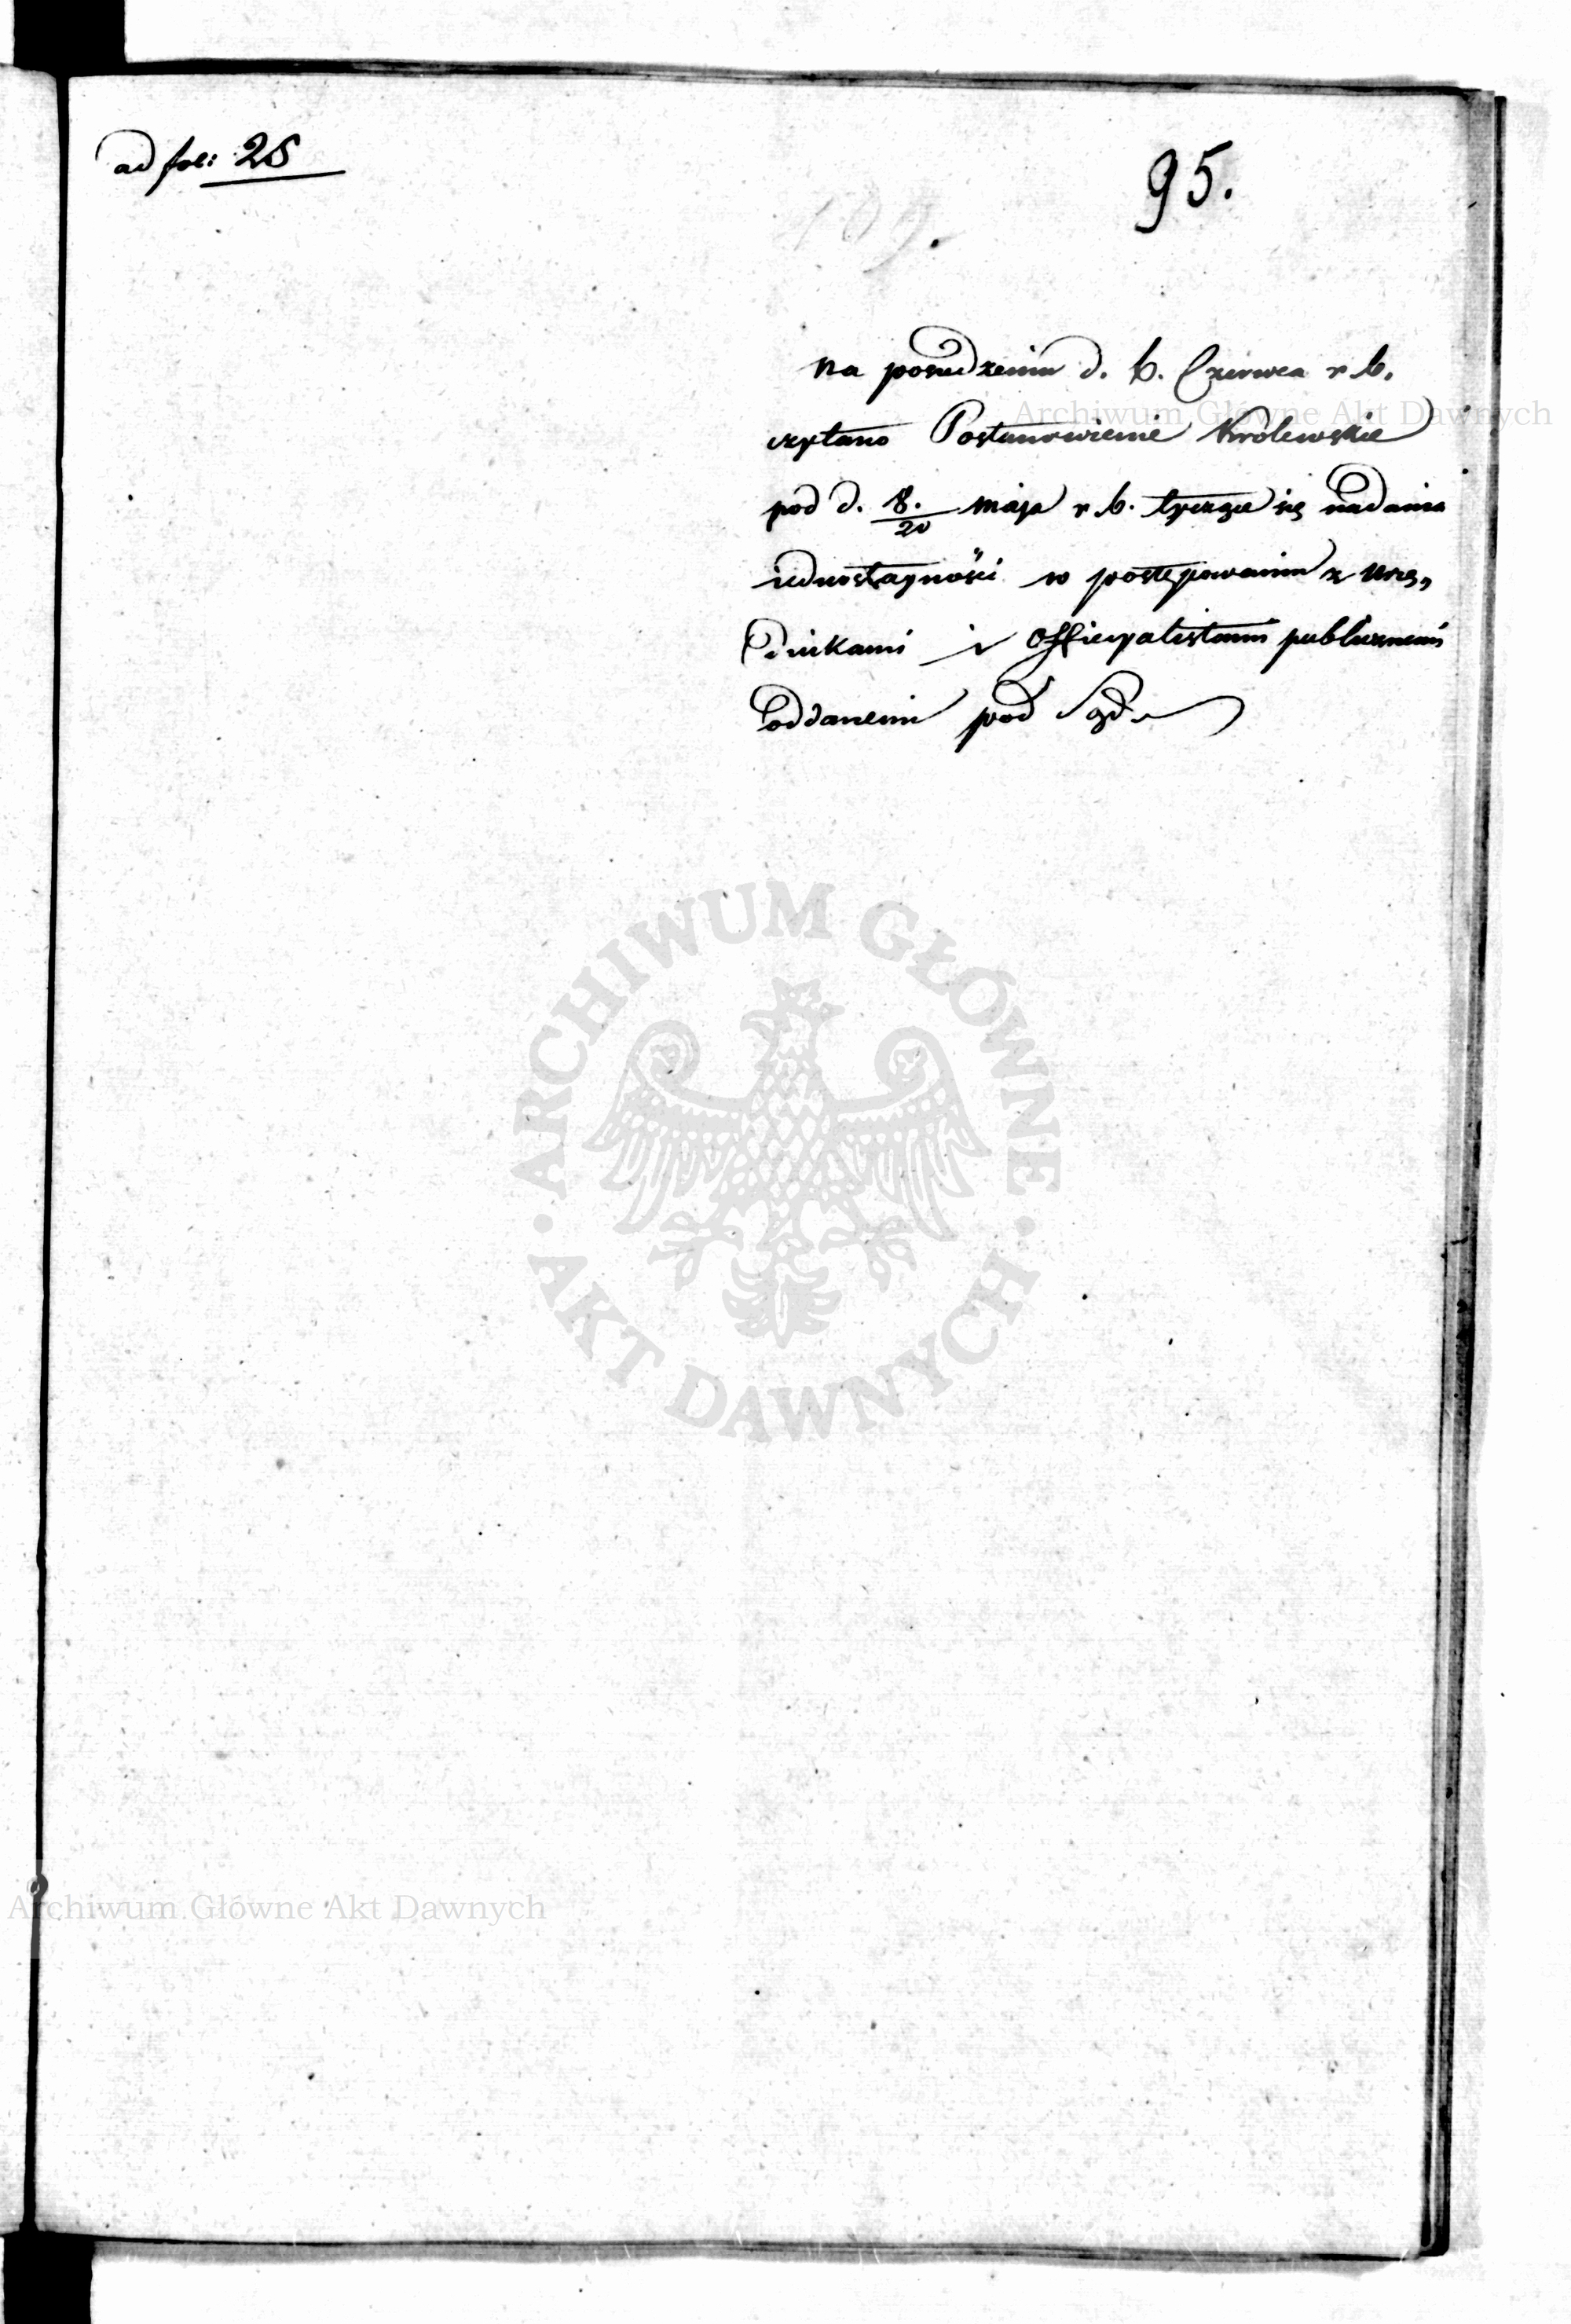 ad fol: 28
95.
109.
Na posiedzeniu d. 6. Czerwca r. b.
czytano Postanowienie Królewskie
pod d. 8./20 Maja r. b. tyczące się nadania
iednostayności w postępowaniu z Urzę„
dnikami i Officyalistami publicznemi
oddanemi pod Sąd.
Archiwum Główne Akt Dawnych
ARCHIWUM GŁÓWNE
AKT DAWNYCH
Archiwum Główne Akt Dawnych